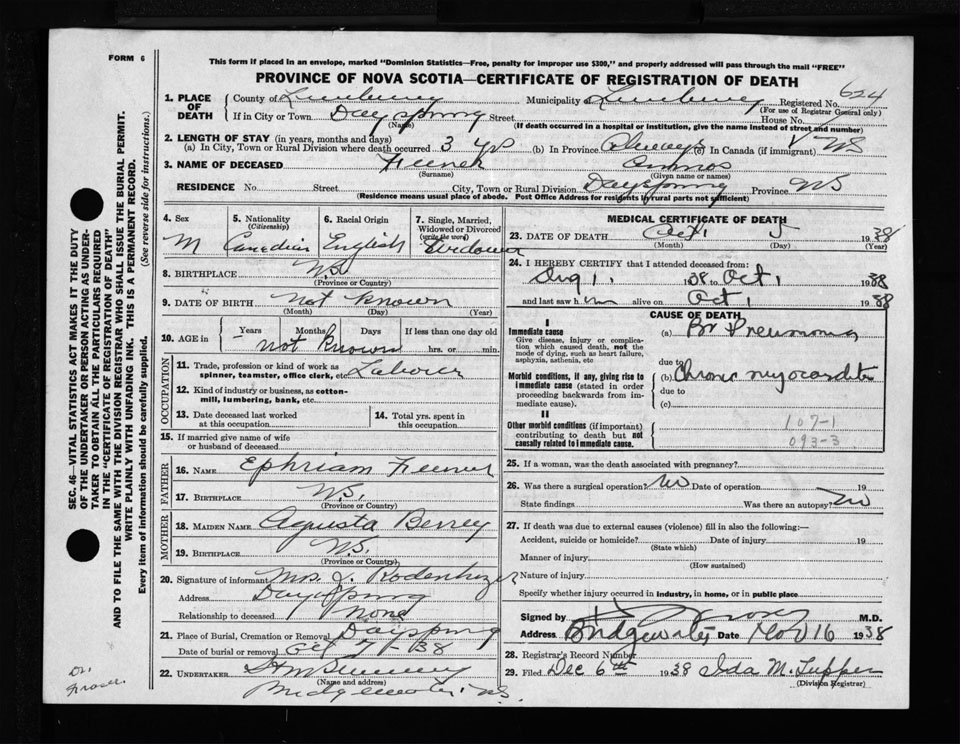 FORM 6
This form if placed in an envelope, marked "Dominion Statistics—Free, penalty for improper use $300," and properly addressed will pass through the mail "FREE"
PROVINCE OF NOVA SCOTIA—CERTIFICATE OF REGISTRATION OF DEATH
1. PLACE OF DEATH County of Lunenburg Municipality of Lunenburg Registered No. 624
(For use of Registrar General only)
If in City or Town Dayspring Street House No.
(Name) (If death occurred in a hospital or institution, give the name instead of street and number)
2. LENGTH OF STAY (in years, months and days)
(a) In City, Town or Rural Division where death occurred 3 yr (b) In Province Always (c) In Canada (if immigrant) NS
3. NAME OF DECEASED
(Surname) (Given name or names)
RESIDENCE No. Street City, Town or Rural Division Dayspring Province NS
(Residence means usual place of abode. Post Office Address for residents by rural parts not sufficient)
4. Sex M
5. Nationality (Citizenship) Canadian
6. Racial Origin English
7. Single, Married, Widowed or Divorced (write the word) Widower
8. BIRTHPLACE N.S.
(Province or Country)
9. DATE OF BIRTH not known
(Month) (Day) (Year)
10. AGE in Years Months Days If less than one day old
- not known hrs. or min.
OCCUPATION
11. Trade, profession or kind of work as spinner, teamster, office clerk, etc. Laborer
12. Kind of industry or business, as cotton-mill, lumbering, bank, etc.
13. Date deceased last worked at this occupation
14. Total yrs. spent in this occupation
15. If married give name of wife or husband of deceased
FATHER
16. NAME Ephriam
17. BIRTHPLACE N.S.
(Province or Country)
MOTHER
18. MAIDEN NAME Agusta
19. BIRTHPLACE N.S.
(Province or Country)
20. Signature of informant Mrs. Rodenhizer
Address Dayspring
Relationship to deceased None
21. Place of Burial, Cremation or Removal Dayspring
Date of burial or removal Oct 7 - 38
22. UNDERTAKER
(Name and address)
Bridgewater N.S.
MEDICAL CERTIFICATE OF DEATH
23. DATE OF DEATH Oct. 5 1938
(Month) (Day) (Year)
24. I HEREBY CERTIFY that I attended deceased from:
Aug 1. 1938 Oct 1 1938
and last saw him alive on Oct 1 1938
CAUSE OF DEATH
I
Immediate cause
Give disease, injury or complication which caused death, not the mode of dying, such as heart failure, asphyxia, asthenia, etc
(a) Br Pneumonia
due to
Morbid conditions, if any, giving rise to immediate cause (stated in order proceeding backwards from immediate cause).
(b) Chronic myocarditis
due to
(c)
II
Other morbid conditions (if important) contributing to death but not causally related to immediate cause.
107-1
093-3
25. If a woman, was the death associated with pregnancy?
26. Was there a surgical operation? no Date of operation 19
State findings Was there an autopsy? no
27. If death was due to external causes (violence) fill in also the following:—
Accident, suicide or homicide? Date of injury 19
(State which)
Manner of injury
(How sustained)
Nature of injury
Specify whether injury occurred in industry, in home, or in public place
Signed by M.D.
Address Bridgewater Date Nov 16 1938
28. Registrar's Record Number
29. Filed Dec 6th 1938 Ida M. Tupper
(Division Registrar)
SEC. 46—VITAL STATISTICS ACT MAKES IT THE DUTY
OF THE UNDERTAKER OR PERSON ACTING AS UNDERTAKER TO OBTAIN ALL THE PARTICULARS REQUIRED
IN THE "CERTIFICATE OF REGISTRATION OF DEATH"
AND TO FILE THE SAME WITH THE DIVISION REGISTRAR WHO SHALL ISSUE THE BURIAL PERMIT.
WRITE PLAINLY WITH UNFADING INK. THIS IS A PERMANENT RECORD.
Every item of information should be carefully supplied. (See reverse side for instructions.)
Dr.
Froser.